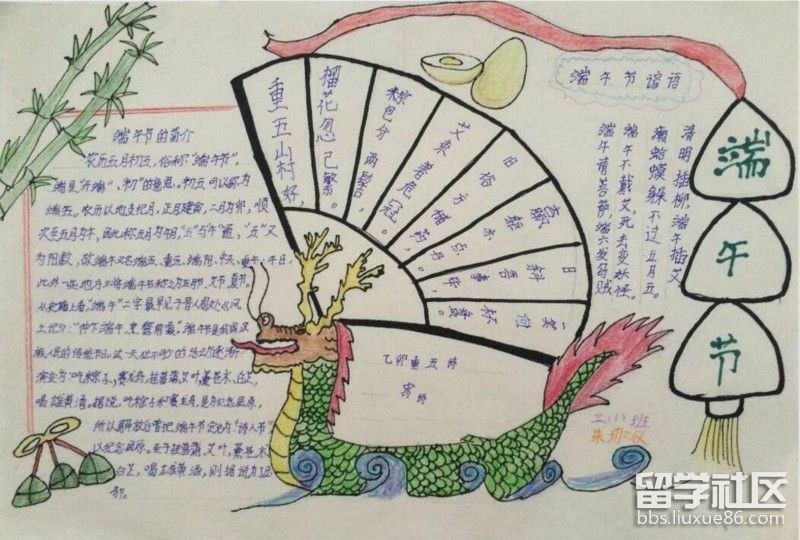 端午节的简介
农历五月初五,俗称"端午节",
端是"开端"、"初"的意思。初五可以称为
端五。农历以地支纪月,正月建寅,二月为卯,顺
次至五月为午,因此称五月为午月,"五"与"午"通,"五"又
为阳数,故端午又名端五、重五、端阳、中天、重午、午日,
此外一些地方又将端午节称之为五月节、艾节、夏节。
从史籍上看,"端午"二字最早见于晋人周处《风
土记》:"仲下端午,烹鹜用黍"。端午节是我国汉
族人民的传统节日。这一天必不可少的活动逐渐
演变为:吃粽子,赛龙舟,挂菖蒲、艾叶,薰苍术、白芷,
喝雄黄酒。据说,吃粽子和赛龙舟,是为纪念屈原,
所以解放后曾把端午节定名为"诗人节"
以纪念屈原。至于挂菖蒲、艾叶,薰苍术、
白芷,喝雄黄酒,则据说为压
邪。
重五山村好,
榴花忽已繁。
粽包分两髻,
艾束著危冠。
旧俗方储药,
羸躯亦点丹。
日斜吾事毕,
一笑向杯盘。
乙卯重五诗
端午节谚语
清明插柳,端午插艾
癞蛤蟆躲不过五月五。
端午不戴艾,死去变妖怪。
端午请菩萨,端六发乌贼
端
午
节
三(1)班
留学社区
bbs.liuxue86.com